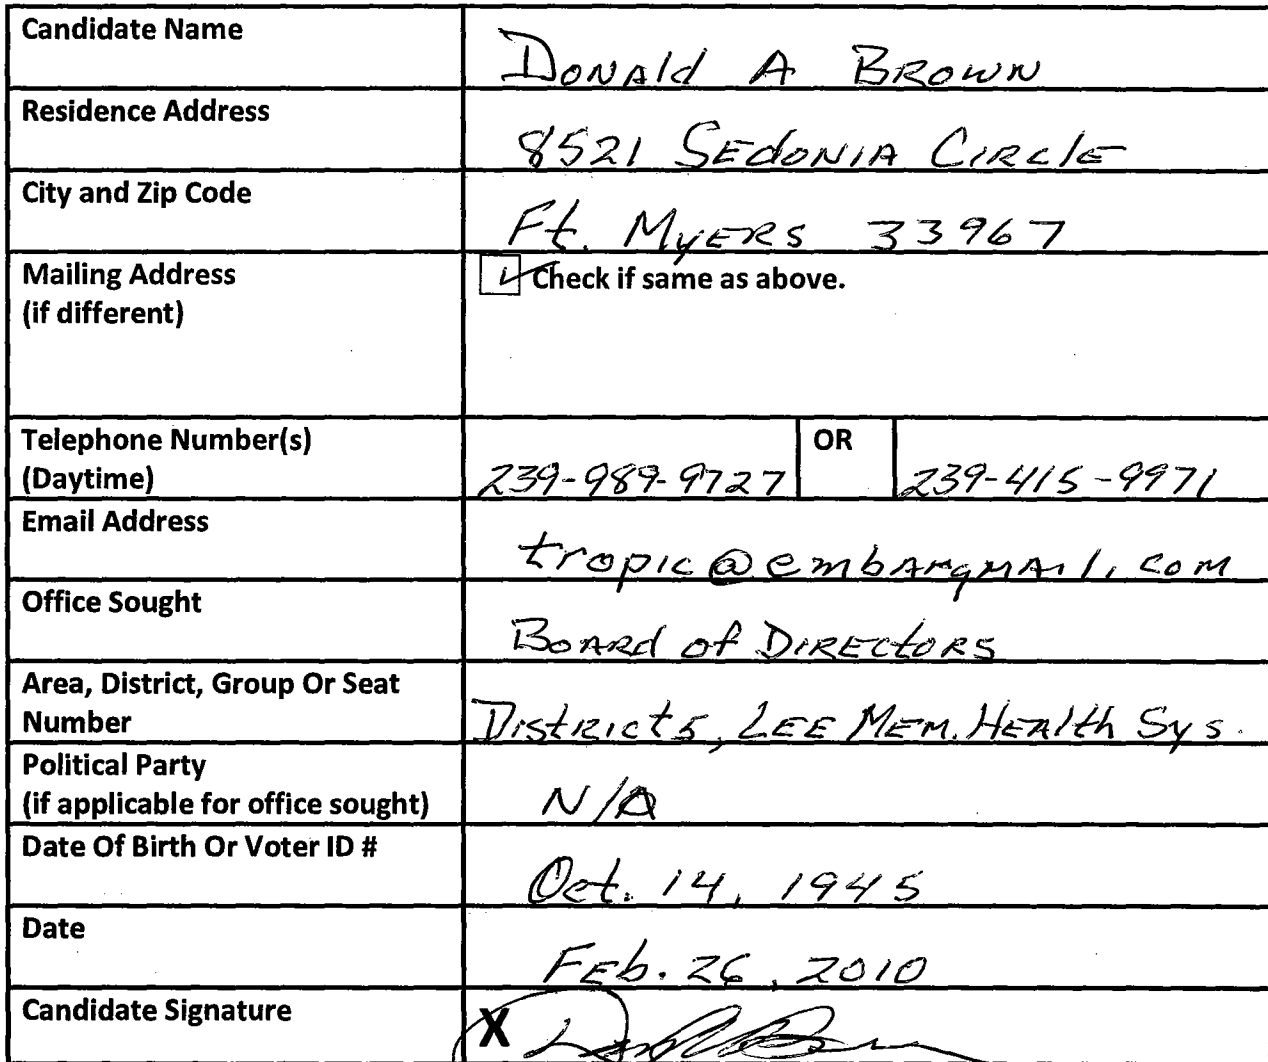 Candidate Name
Donald A Brown
Residence Address
8521 Sedonia Circle
City and Zip Code
Ft. Myers 33967
Mailing Address
(if different)
Check if same as above.
Telephone Number(s)
(Daytime)
239-989-9727 OR 239-415-9971
Email Address
tropic@embarqmail.com
Office Sought
Board of Directors
Area, District, Group Or Seat
Number
District 5, Lee Mem. Health Sys.
Political Party
(if applicable for office sought)
N/A
Date Of Birth Or Voter ID #
Oct. 14, 1945
Date
Feb. 26, 2010
Candidate Signature
X